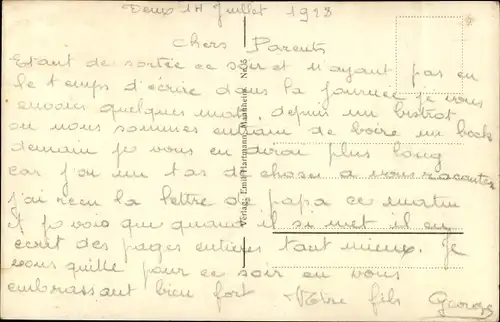 Deux 14 Juillet 1928
Chers Parents
Etant de sortée ce soir et n'ayant pas eu
le temps d'écrire dans la journée je vous
envoie quelques mots, depuis un bistrot
où nous sommes entrain de boire un bock
demain je vous en dirai plus long
car j'ai un tas de choses a vous raconter
j'ai recu la lettre de papa ce matin
et je vois que quand il si met il en
ecrit des pages entieres tant mieux. Je
vous quitte pour ce soir en vous
embrassant bien fort Votre fils Georges
Verlag: Emil Hartmann, Mannheim. Nr.